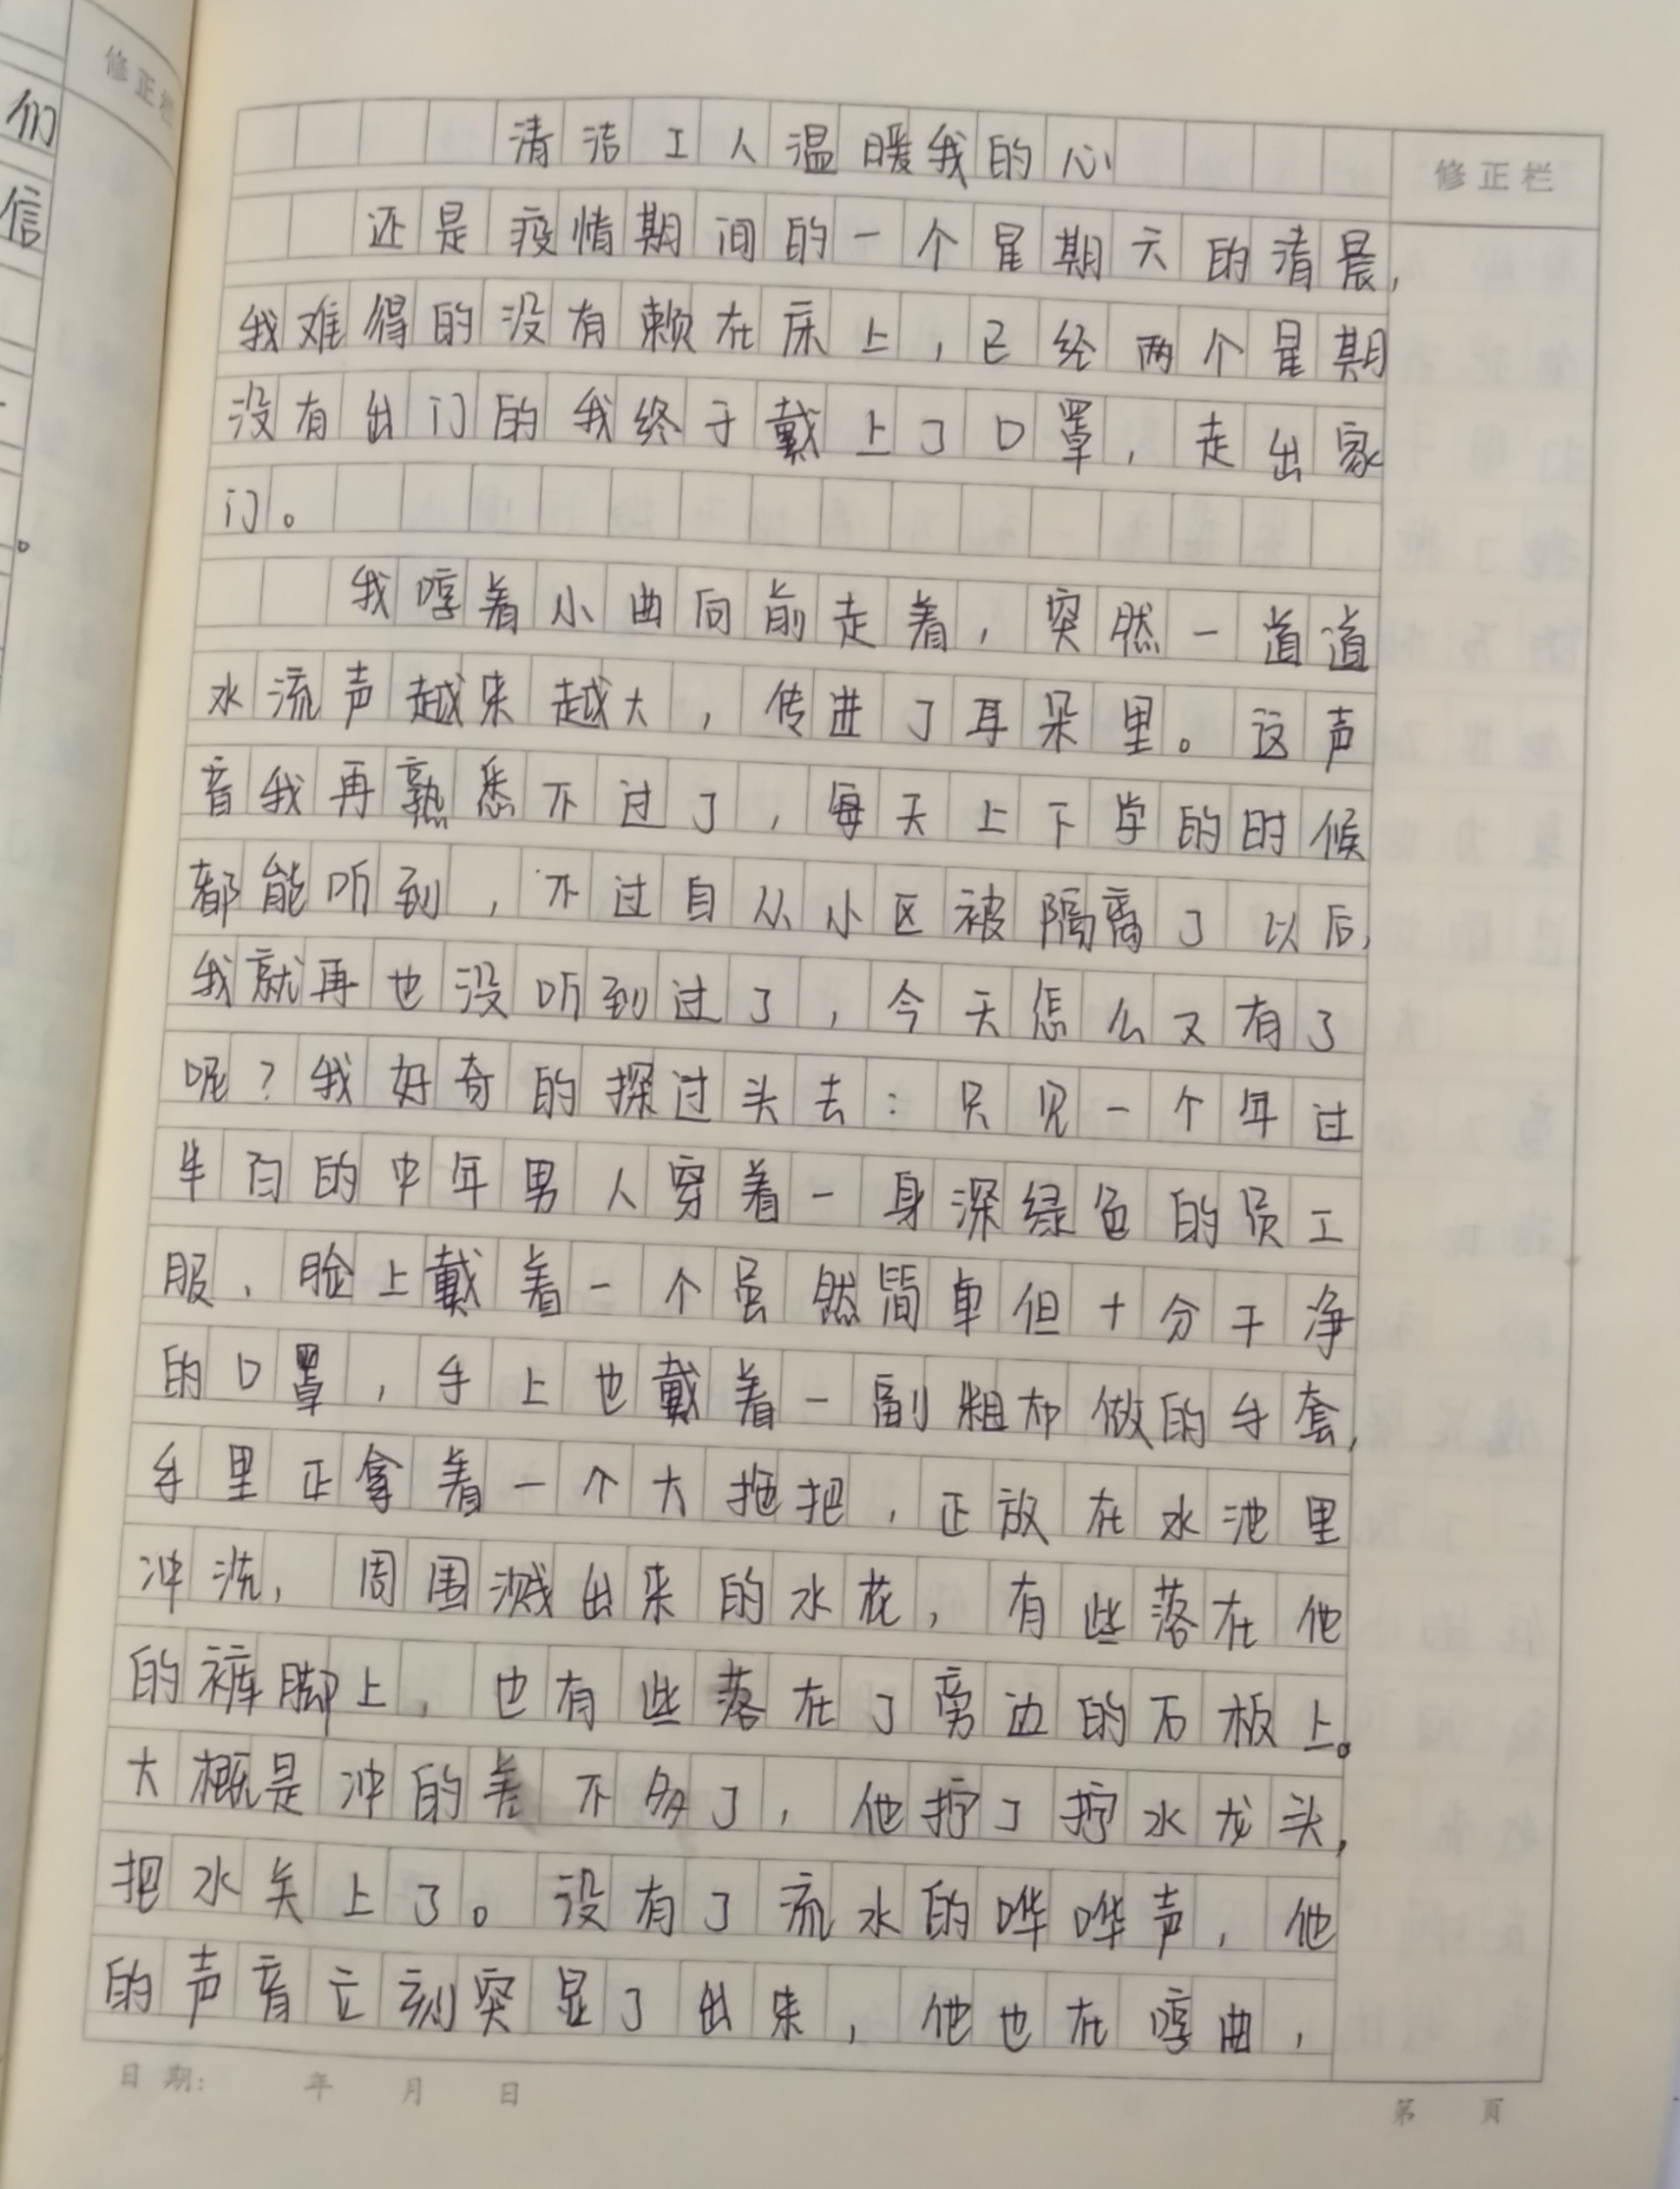 们
信
。
修正栏
清洁工人温暖我的心
修正栏
还是疫情期间的一个星期天的清晨,
我难得的没有赖在床上,已经两个星期
没有出门的我终于戴上了口罩,走出家
门。
我哼着小曲向前走着,突然一道道
水流声越来越大,传进了耳朵里。这声
音我再熟悉不过了,每天上下学的时候
都能听到,不过自从小区被隔离了以后,
我就再也没听到过了,今天怎么又有了
呢?我好奇的探过头去:只见一个年过
半百的中年男人穿着一身深绿色的员工
服,脸上戴着一个虽然简单但十分干净
的口罩,手上也戴着一副粗布做的手套,
手里正拿着一个大拖把,正放在水池里
冲洗,周围溅出来的水花,有些落在他
的裤脚上,也有些落在了旁边的石板上。
大概是冲的差不多了,他拧了拧水龙头,
把水关上了。没有了流水的哗哗声,他
的声音立刻突显了出来,他也在哼曲,
日期: 年 月 日
第 頁